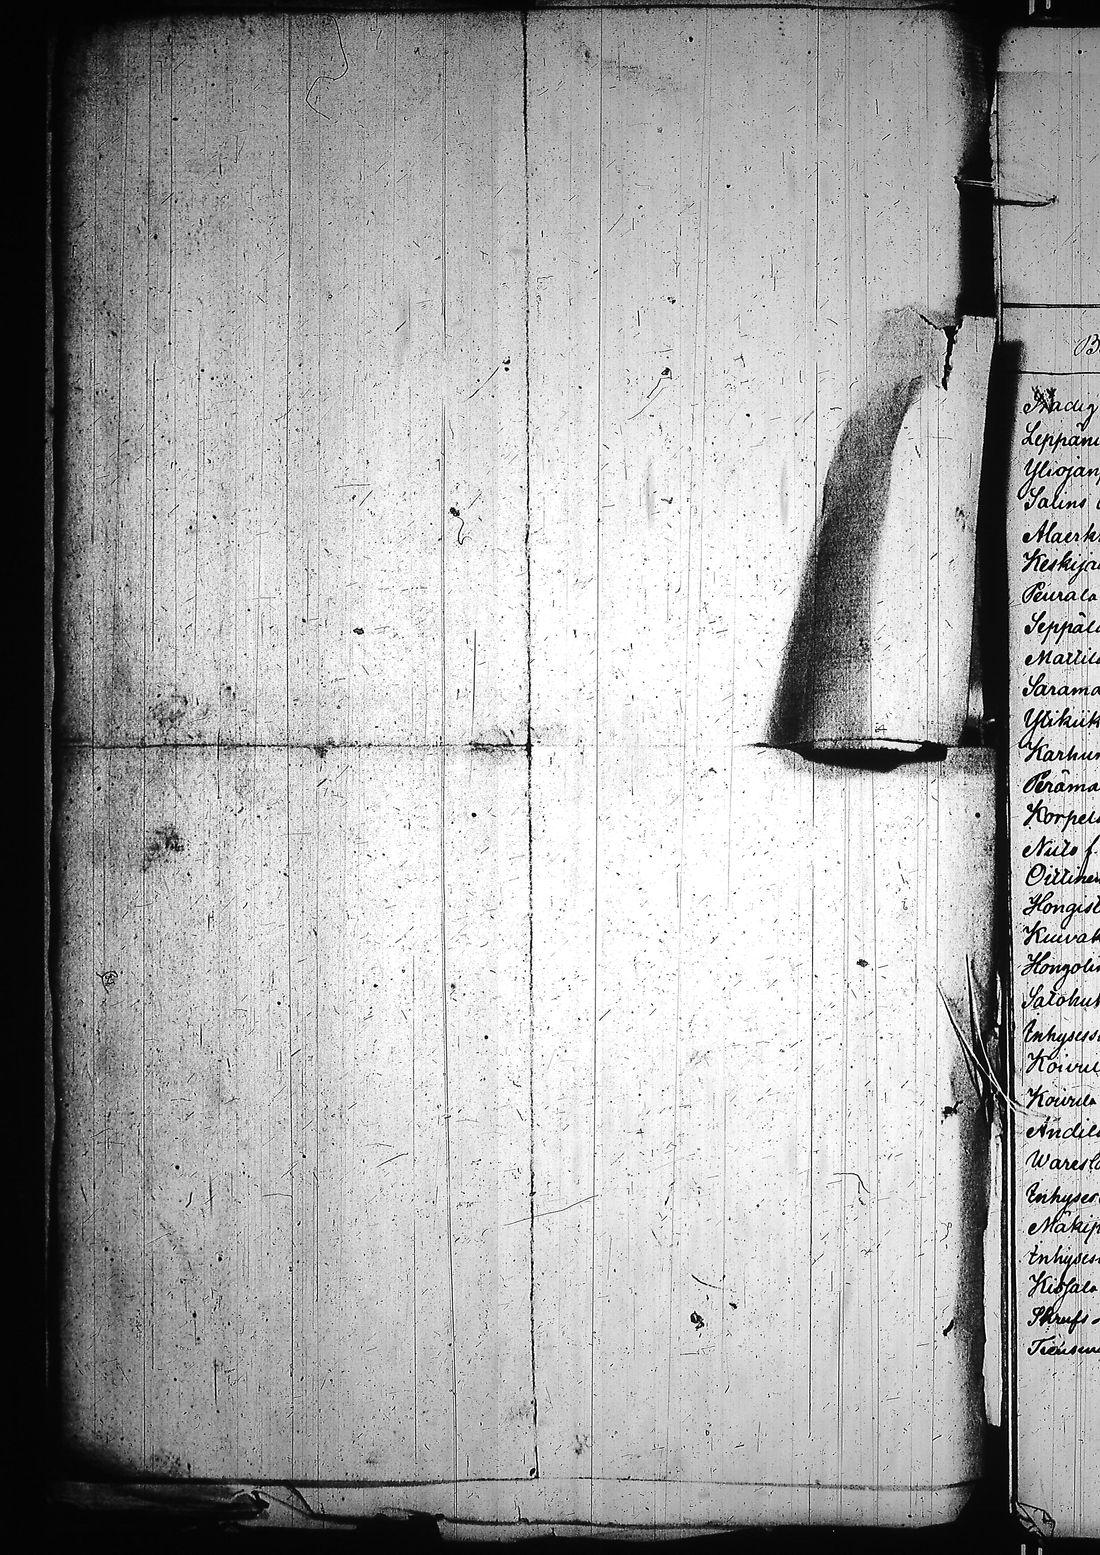 B
Nadig
Leppän
Yliojan
Salins
Alaerk
Keskijä
Peurala
Seppälä
Mattila
Sarama
Ylikiik
Karhun
Peräma
Korpela
Niilo f.
Oittinen
Hongist
Kuivak
Hongolin
Satohu
Inhyses
Koivul
Koivula
Andila
Waresl
Inhyses
Mäkip
Inhyses
Kisjala
Skrufs